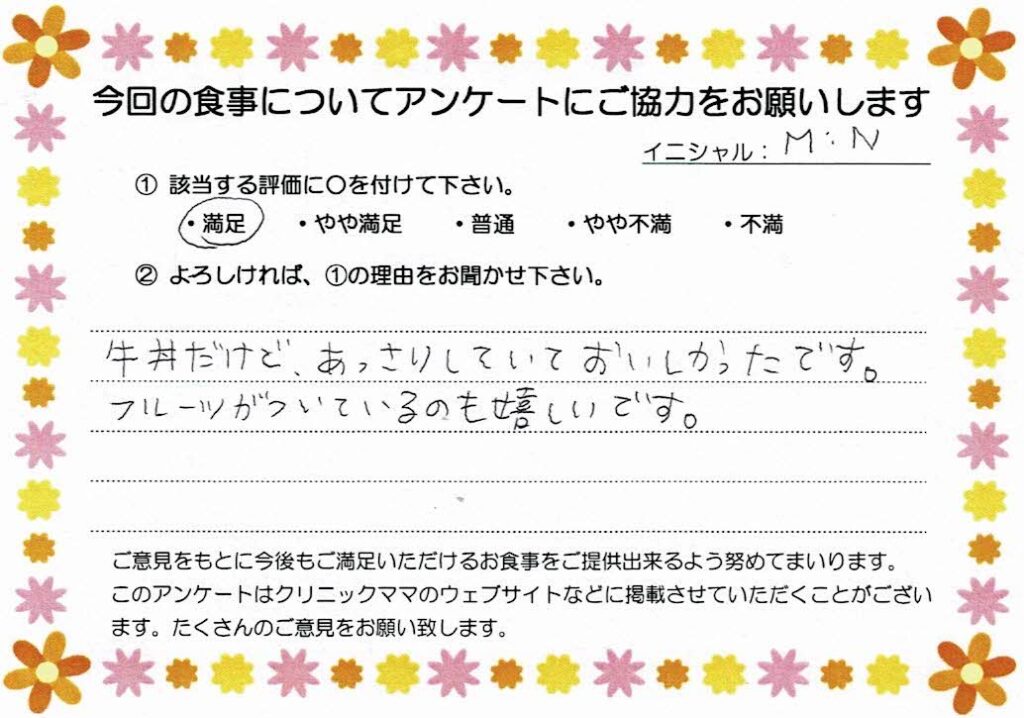 今回の食事についてアンケートにご協力をお願いします
イニシャル： M：N
① 該当する評価に〇を付けて下さい。
・満足 ・やや満足 ・普通 ・やや不満 ・不満
② よろしければ、①の理由をお聞かせ下さい。
牛丼だけど、あっさりしていておいしかったです。
フルーツがついているのも嬉しいです。
ご意見をもとに今後もご満足いただけるお食事をご提供出来るよう努めてまいります。
このアンケートはクリニックママのウェブサイトなどに掲載させていただくことがござい
ます。たくさんのご意見をお願い致します。